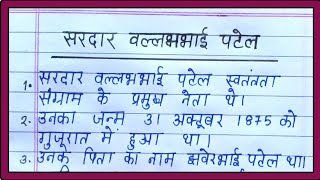 सरदार वल्लभभाई पटेल
1. सरदार वल्लभभाई पटेल स्वतंत्रता
संग्राम के प्रमुख नेता थे।
2. उनका जन्म 31 अक्टूबर 1875 को
गुजरात में हुआ था।
3. उनके पिता का नाम झवेरभाई पटेल था।